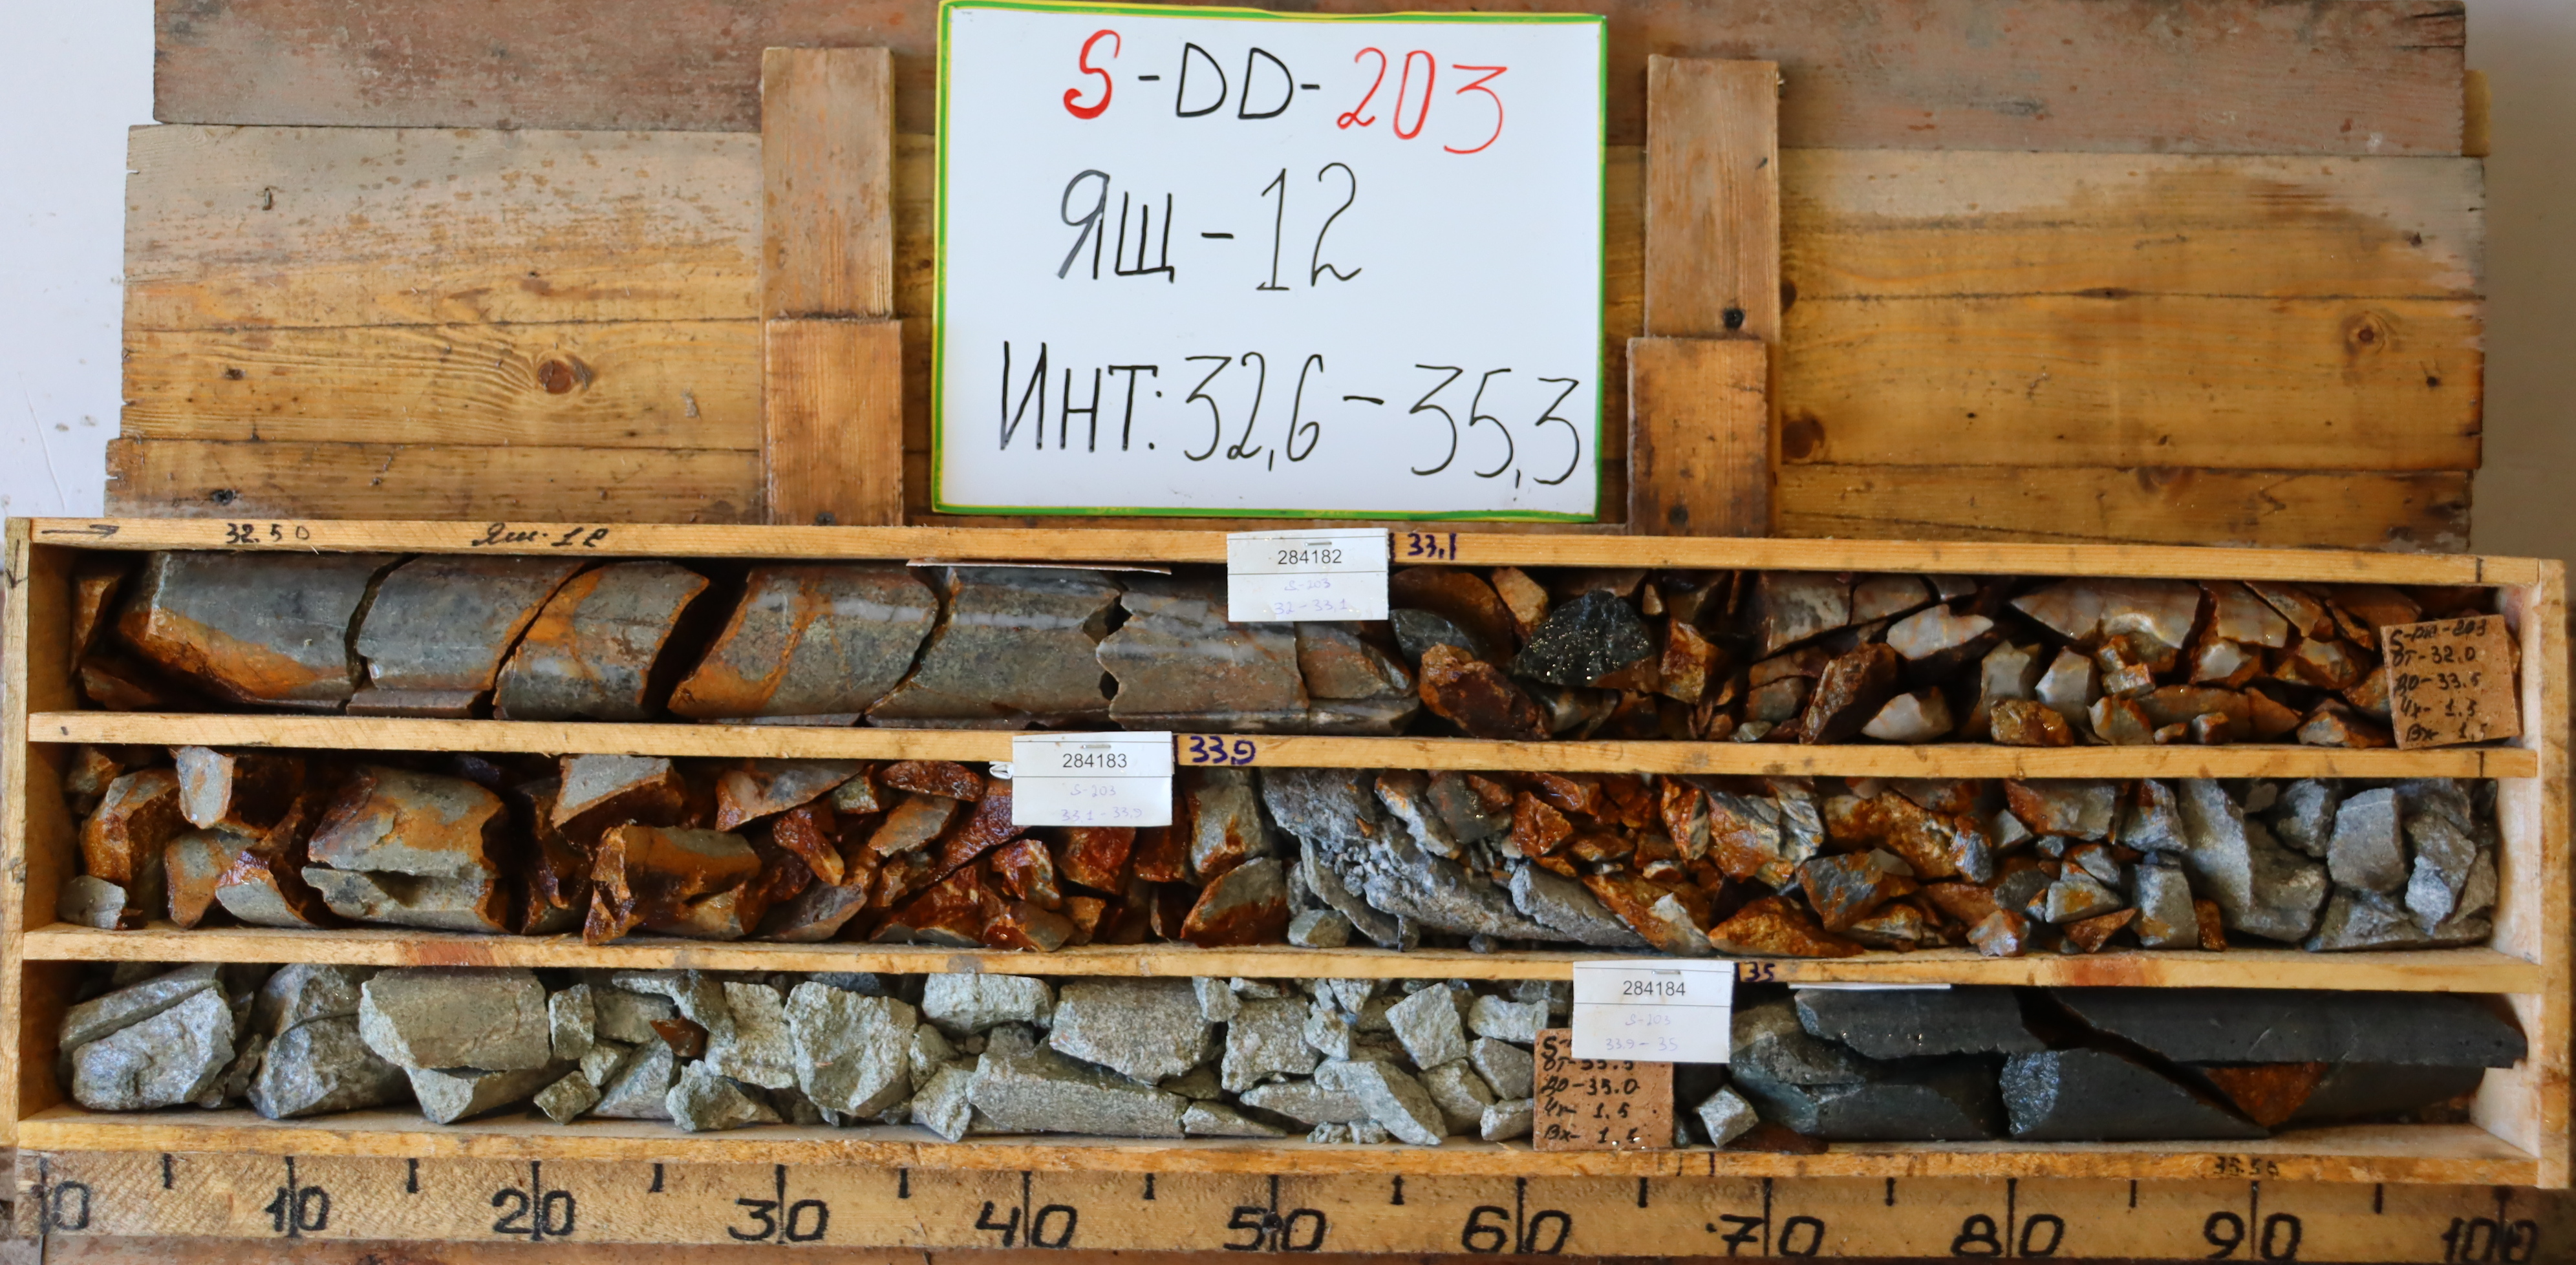 S-DD-203
ЯЩ-12
ИНТ: 32,6-35,3
32.50 Ящ. 12
284182
S-203
32-33,1
33,1
S-DD-203
От-32.0
До-33.5
Ух- 1.5
Вх- 1,5
284183
S-203
33,1-33,9
33,9
284184
S-203
33.9-35
35
S-
От-33.5
До-35.0
Ух- 1.5
Вх-
35.50
0 10 20 30 40 50 60 70 80 90 100